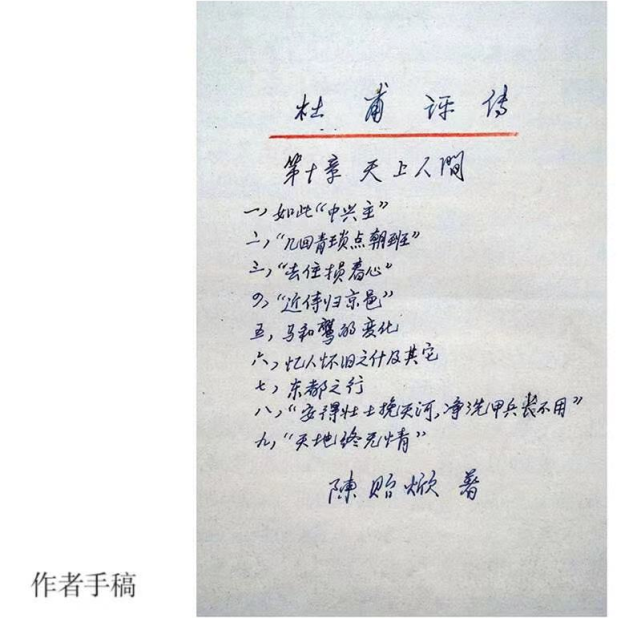 杜甫评传
第十章 天上人間
一、如此“中兴主”
二、“几回青琐点朝班”
三、“去住损春心”
四、“近侍归京邑”
五、马和鹰的变化
六、忆人怀旧之什及其它
七、东都之行
八、“安得壮士挽天河,净洗甲兵长不用”
九、“天地终无情”
陳贻焮 著
作者手稿